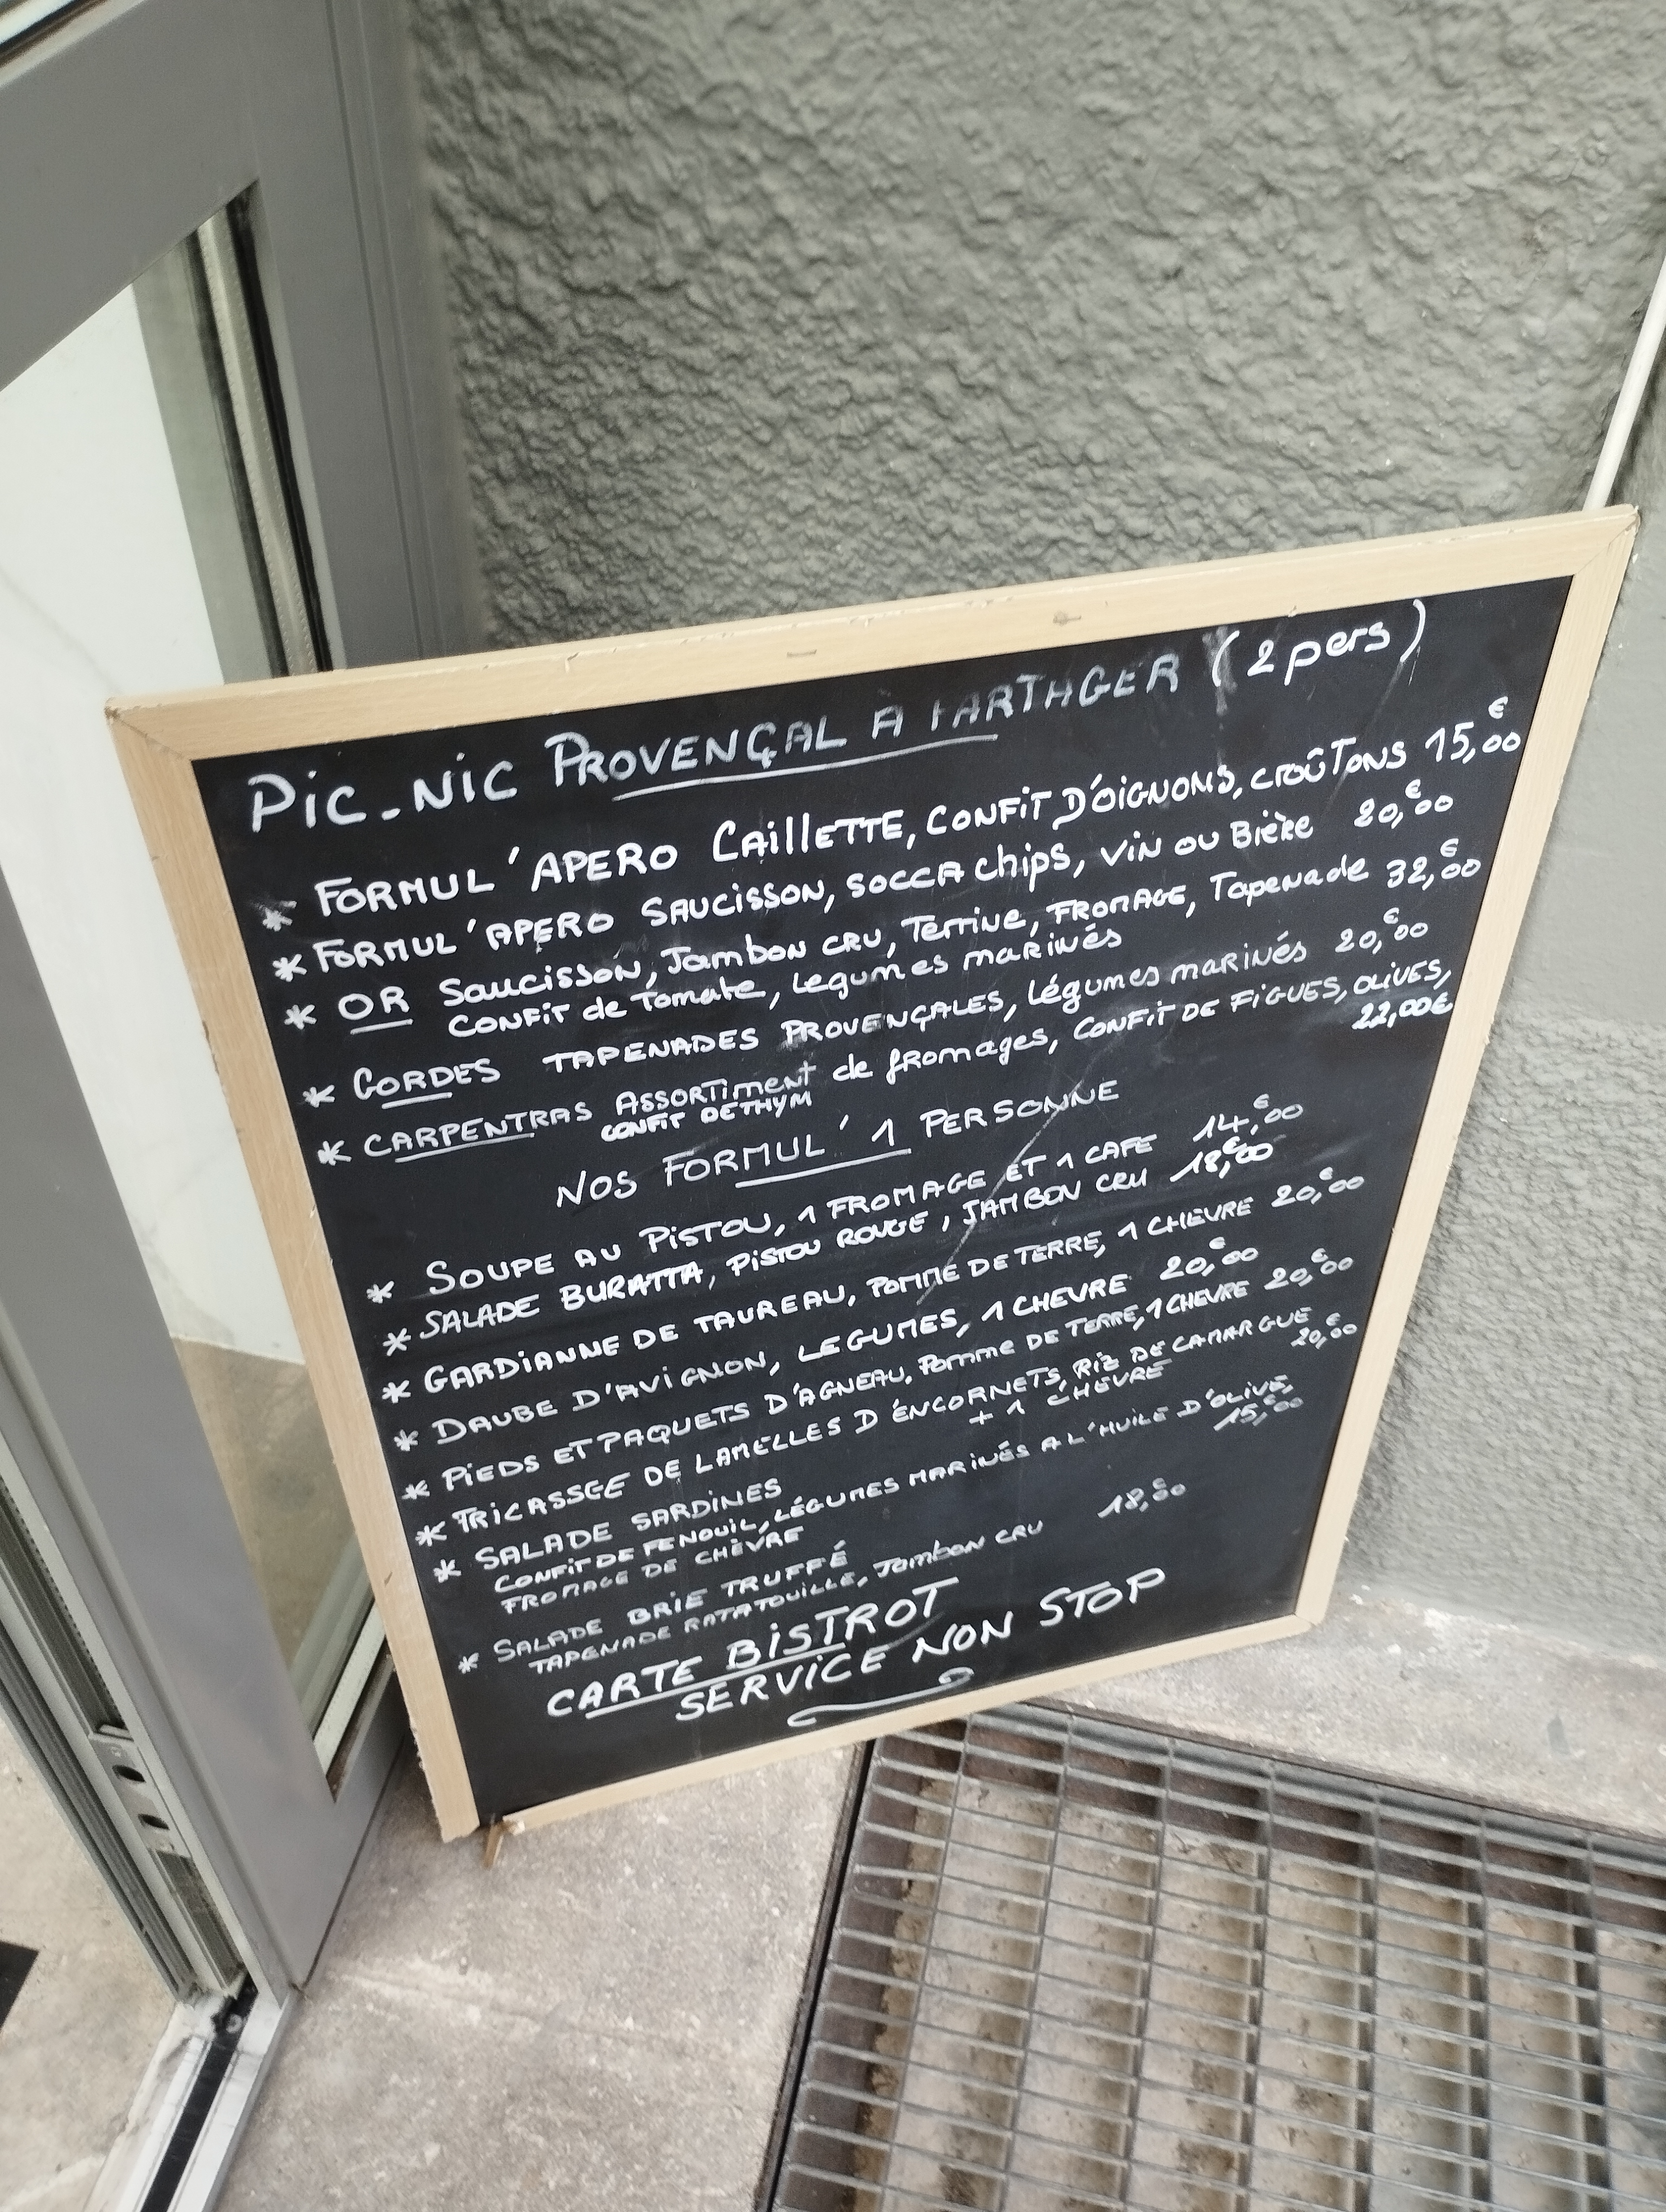 PIC-NIC PROVENÇAL A PARTAGER (2 pers)
* FORMUL'APERO CAILLETTE, CONFIT D'OIGNONS, CROÛTONS 15,00€
* FORMUL'APERO SAUCISSON, SOCCA CHIPS, VIN OU BIÈRE 20,00€
* OR SAUCISSON, JAMBON CRU, TERRINE, FROMAGE, TAPENADE 32,00€
CONFIT de TOMATE, LEGUMES MARINÉS
* GORDES TAPENADES PROVENÇALES, LÉGUMES MARINÉS 20,00€
* CARPENTRAS ASSORTIMENT de FROMAGES, CONFIT DE FIGUES, OLIVES,
CONFIT DE THYM 22,00€
NOS FORMUL' 1 PERSONNE
* SOUPE AU PISTOU, 1 FROMAGE ET 1 CAFE 14,00€
* SALADE BURATTA, PISTOU ROUGE, JAMBON CRU 18,00€
* GARDIANNE DE TAUREAU, POMME DE TERRE, 1 CHEVRE 20,00€
* DAUBE D'AVIGNON, LEGUMES, 1 CHEVRE 20,00€
* PIEDS ET PAQUETS D'AGNEAU, POMME DE TERRE, 1 CHEVRE 20,00€
* FRICASSGE DE LAMELLES D'ENCORNETS, RIZ DE CAMARGUE
+ 1 CHEVRE 20,00€
* SALADE SARDINES
CONFIT DE FENOUIL, LÉGUMES MARINÉS A L'HUILE D'OLIVE,
FROMAGE DE CHÈVRE 15,00€
* SALADE BRIE TRUFFÉ
TAPENADE RATATOUILLE, JAMBON CRU 18,€0
CARTE BISTROT
SERVICE NON STOP